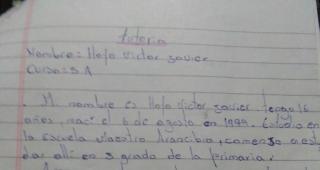 tutoria
Nombre: Hofo Victor xavier
Curso: 3 A
. Mi nombre es Hofo Victor xavier tengo 16
años, naci el 6 de agosto en 1999. Estudio en
la escuela Maestro Arancibia, comenze a es
dar allí en 3 grado de la primaria.